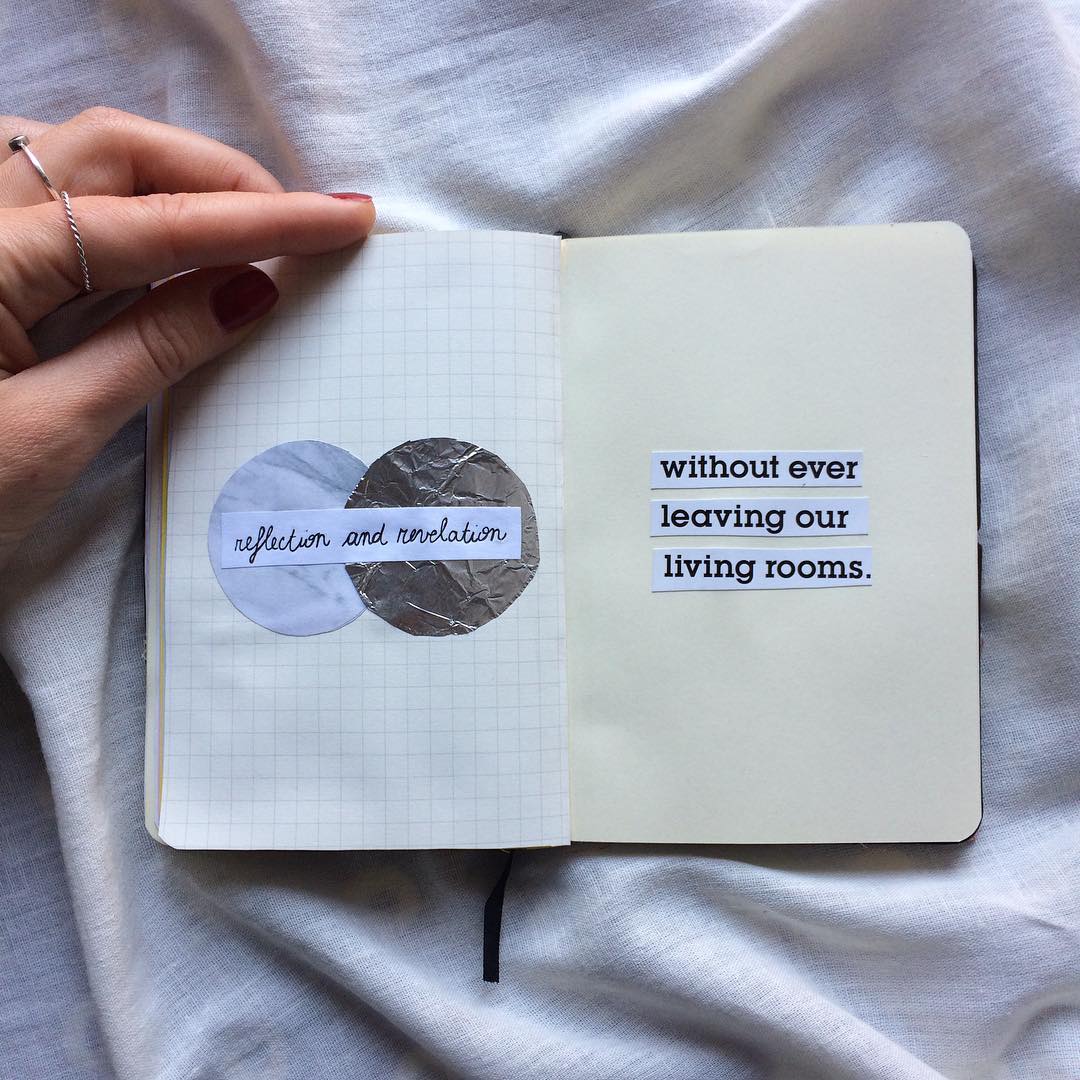 reflection and revelation
without ever
leaving our
living rooms.